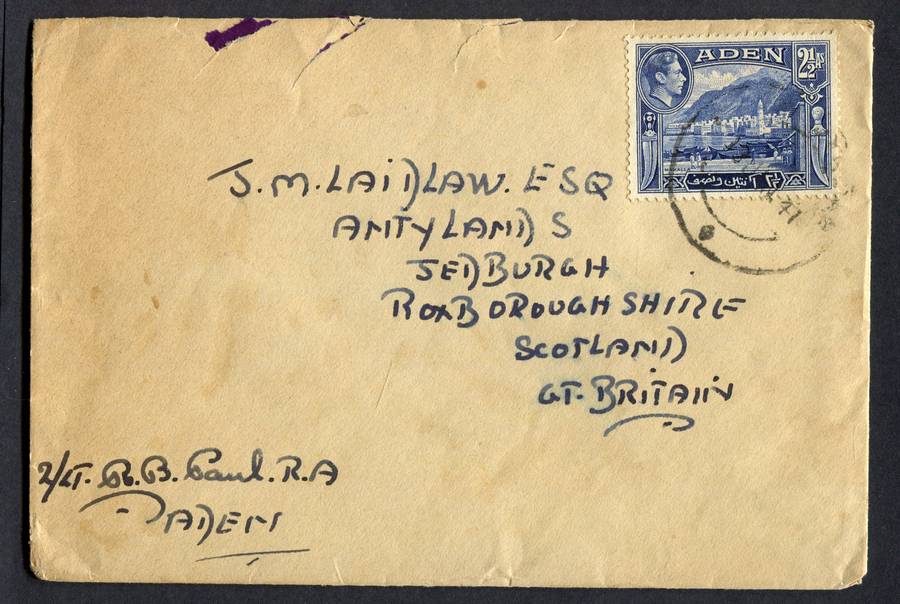 ADEN
2½ As
٢½ آنتين ونصف
J. M. LAIDLAW. ESQ
ANTYLANDS
JEDBURGH
ROXBOROUGHSHIRE
SCOTLAND
GT. BRITAIN
2/LT. R. B. Paul. R.A
ADEN